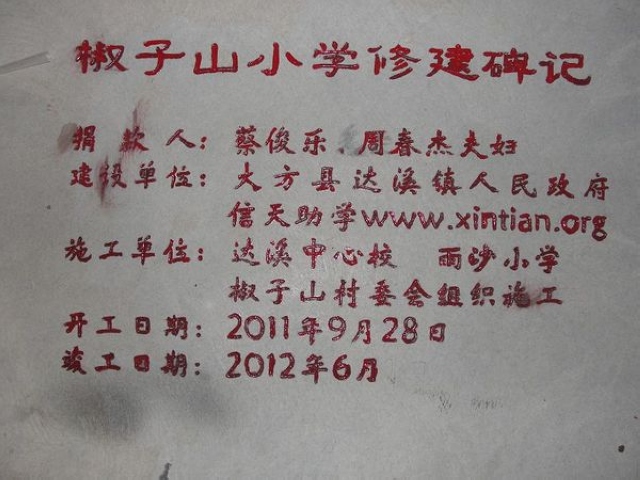 椒子山小学修建碑记
捐款人：蔡俊乐 周春杰夫妇
建设单位：大方县达溪镇人民政府
信天助学www.xintian.org
施工单位：达溪中心校 雨沙小学
椒子山村委会组织施工
开工日期：2011年9月28日
竣工日期：2012年6月